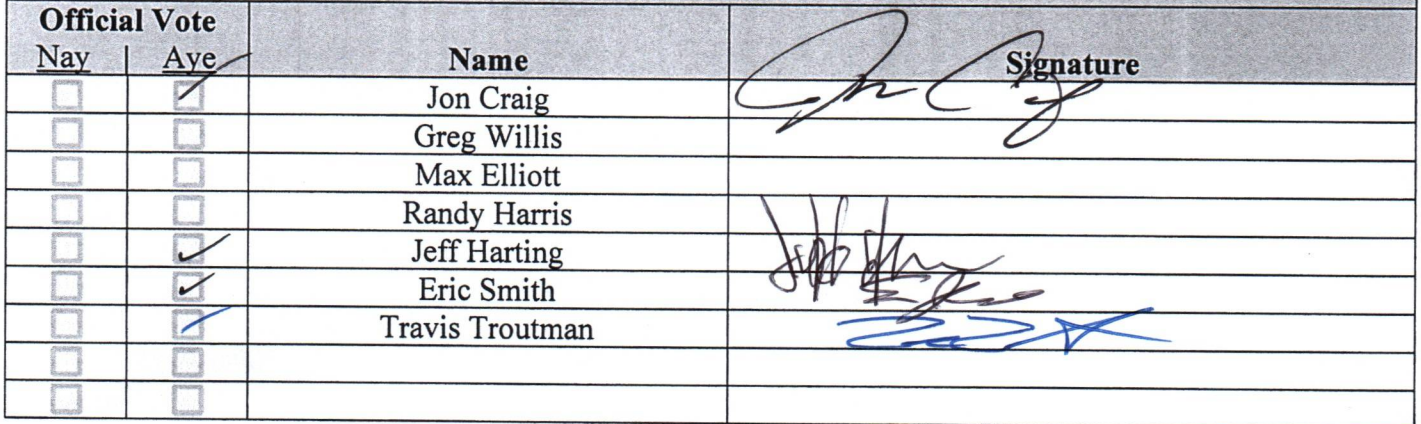 Official Vote
Nay Aye Name Signature
Jon Craig
Greg Willis
Max Elliott
Randy Harris
Jeff Harting
Eric Smith
Travis Troutman